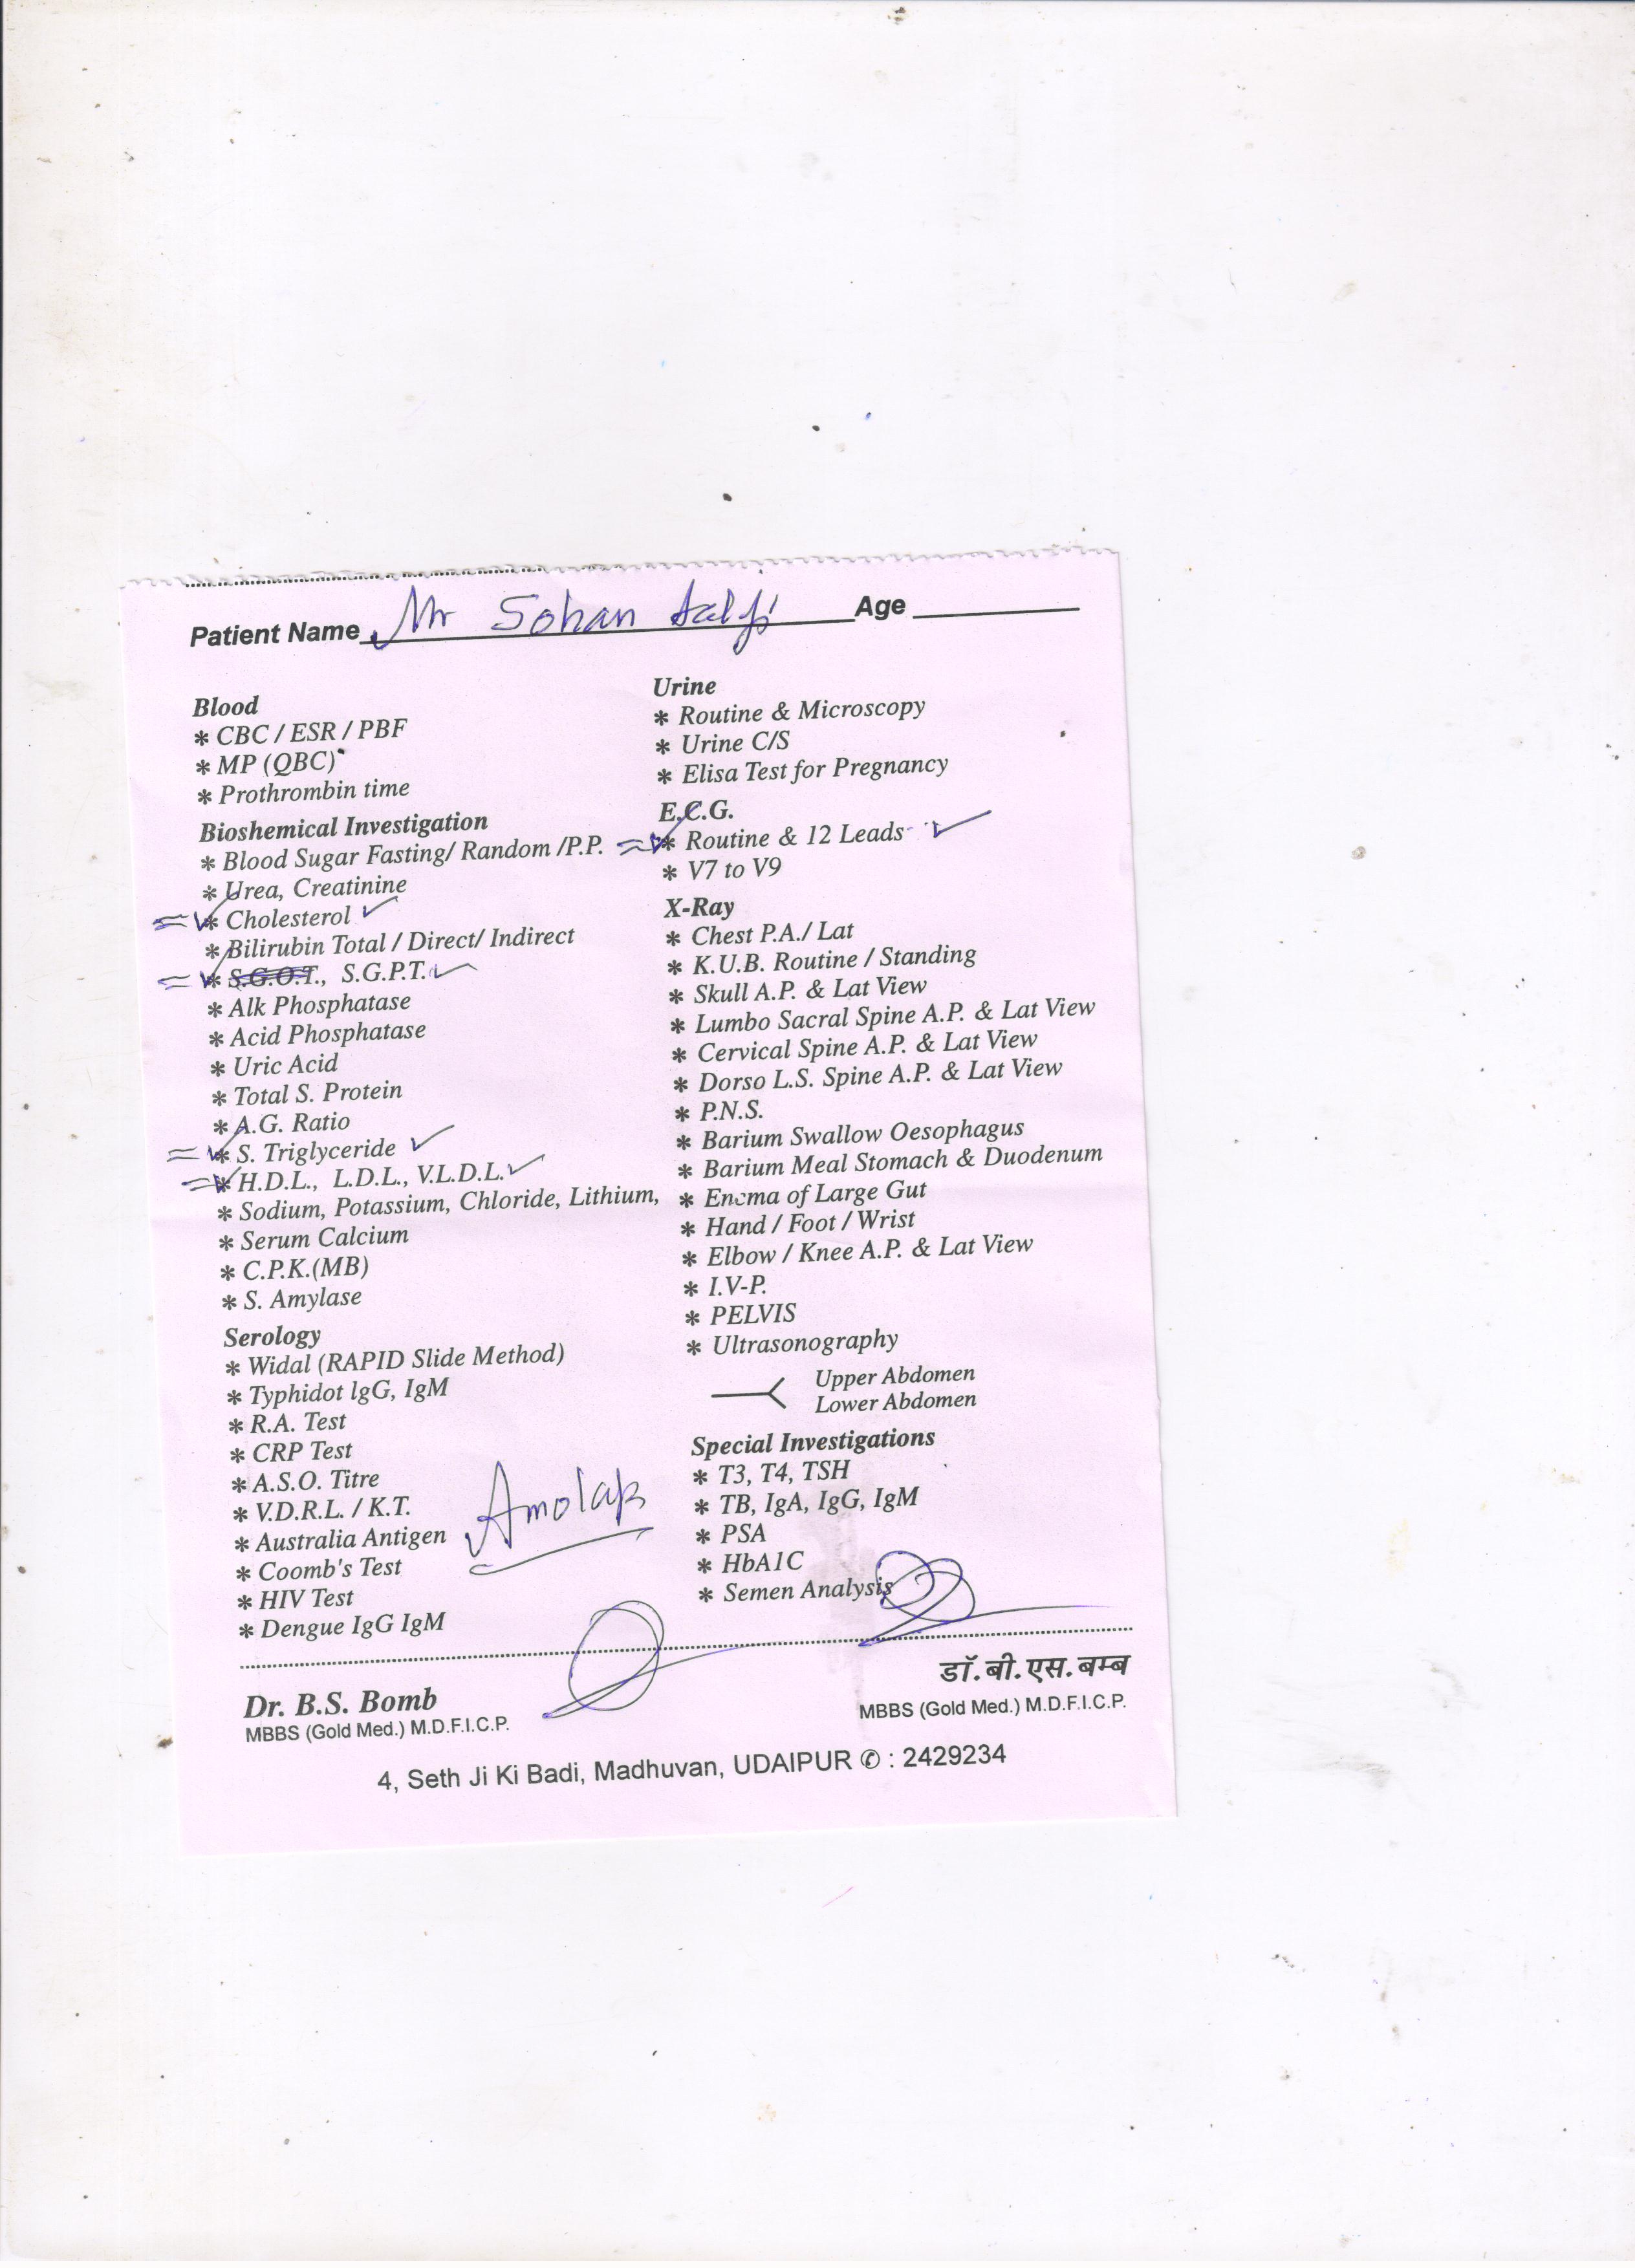 Patient Name Mr Sohan Lalji Age
Blood
* CBC / ESR / PBF
* MP (QBC)
* Prothrombin time
Bioshemical Investigation
* Blood Sugar Fasting/ Random /P.P.
* Urea, Creatinine
= ✓* Cholesterol ✓
* Bilirubin Total / Direct/ Indirect
= ✓* S.G.O.T., S.G.P.T. ✓
* Alk Phosphatase
* Acid Phosphatase
* Uric Acid
* Total S. Protein
* A.G. Ratio
= ✓* S. Triglyceride ✓
= ✓* H.D.L., L.D.L., V.L.D.L. ✓
* Sodium, Potassium, Chloride, Lithium,
* Serum Calcium
* C.P.K.(MB)
* S. Amylase
Serology
* Widal (RAPID Slide Method)
* Typhidot lgG, IgM
* R.A. Test
* CRP Test
* A.S.O. Titre
* V.D.R.L. / K.T.
* Australia Antigen
* Coomb's Test
* HIV Test
* Dengue IgG IgM
Urine
* Routine & Microscopy
* Urine C/S
* Elisa Test for Pregnancy
E.C.G.
= ✓* Routine & 12 Leads ✓
* V7 to V9
X-Ray
* Chest P.A./ Lat
* K.U.B. Routine / Standing
* Skull A.P. & Lat View
* Lumbo Sacral Spine A.P. & Lat View
* Cervical Spine A.P. & Lat View
* Dorso L.S. Spine A.P. & Lat View
* P.N.S.
* Barium Swallow Oesophagus
* Barium Meal Stomach & Duodenum
* Enema of Large Gut
* Hand / Foot / Wrist
* Elbow / Knee A.P. & Lat View
* I.V-P.
* PELVIS
* Ultrasonography
Upper Abdomen
Lower Abdomen
Special Investigations
* T3, T4, TSH
* TB, IgA, IgG, IgM
* PSA
* HbA1C
* Semen Analysis
Amolak
Dr. B.S. Bomb
MBBS (Gold Med.) M.D.F.I.C.P.
डॉ. बी. एस. बम्ब
MBBS (Gold Med.) M.D.F.I.C.P.
4, Seth Ji Ki Badi, Madhuvan, UDAIPUR ✆ : 2429234